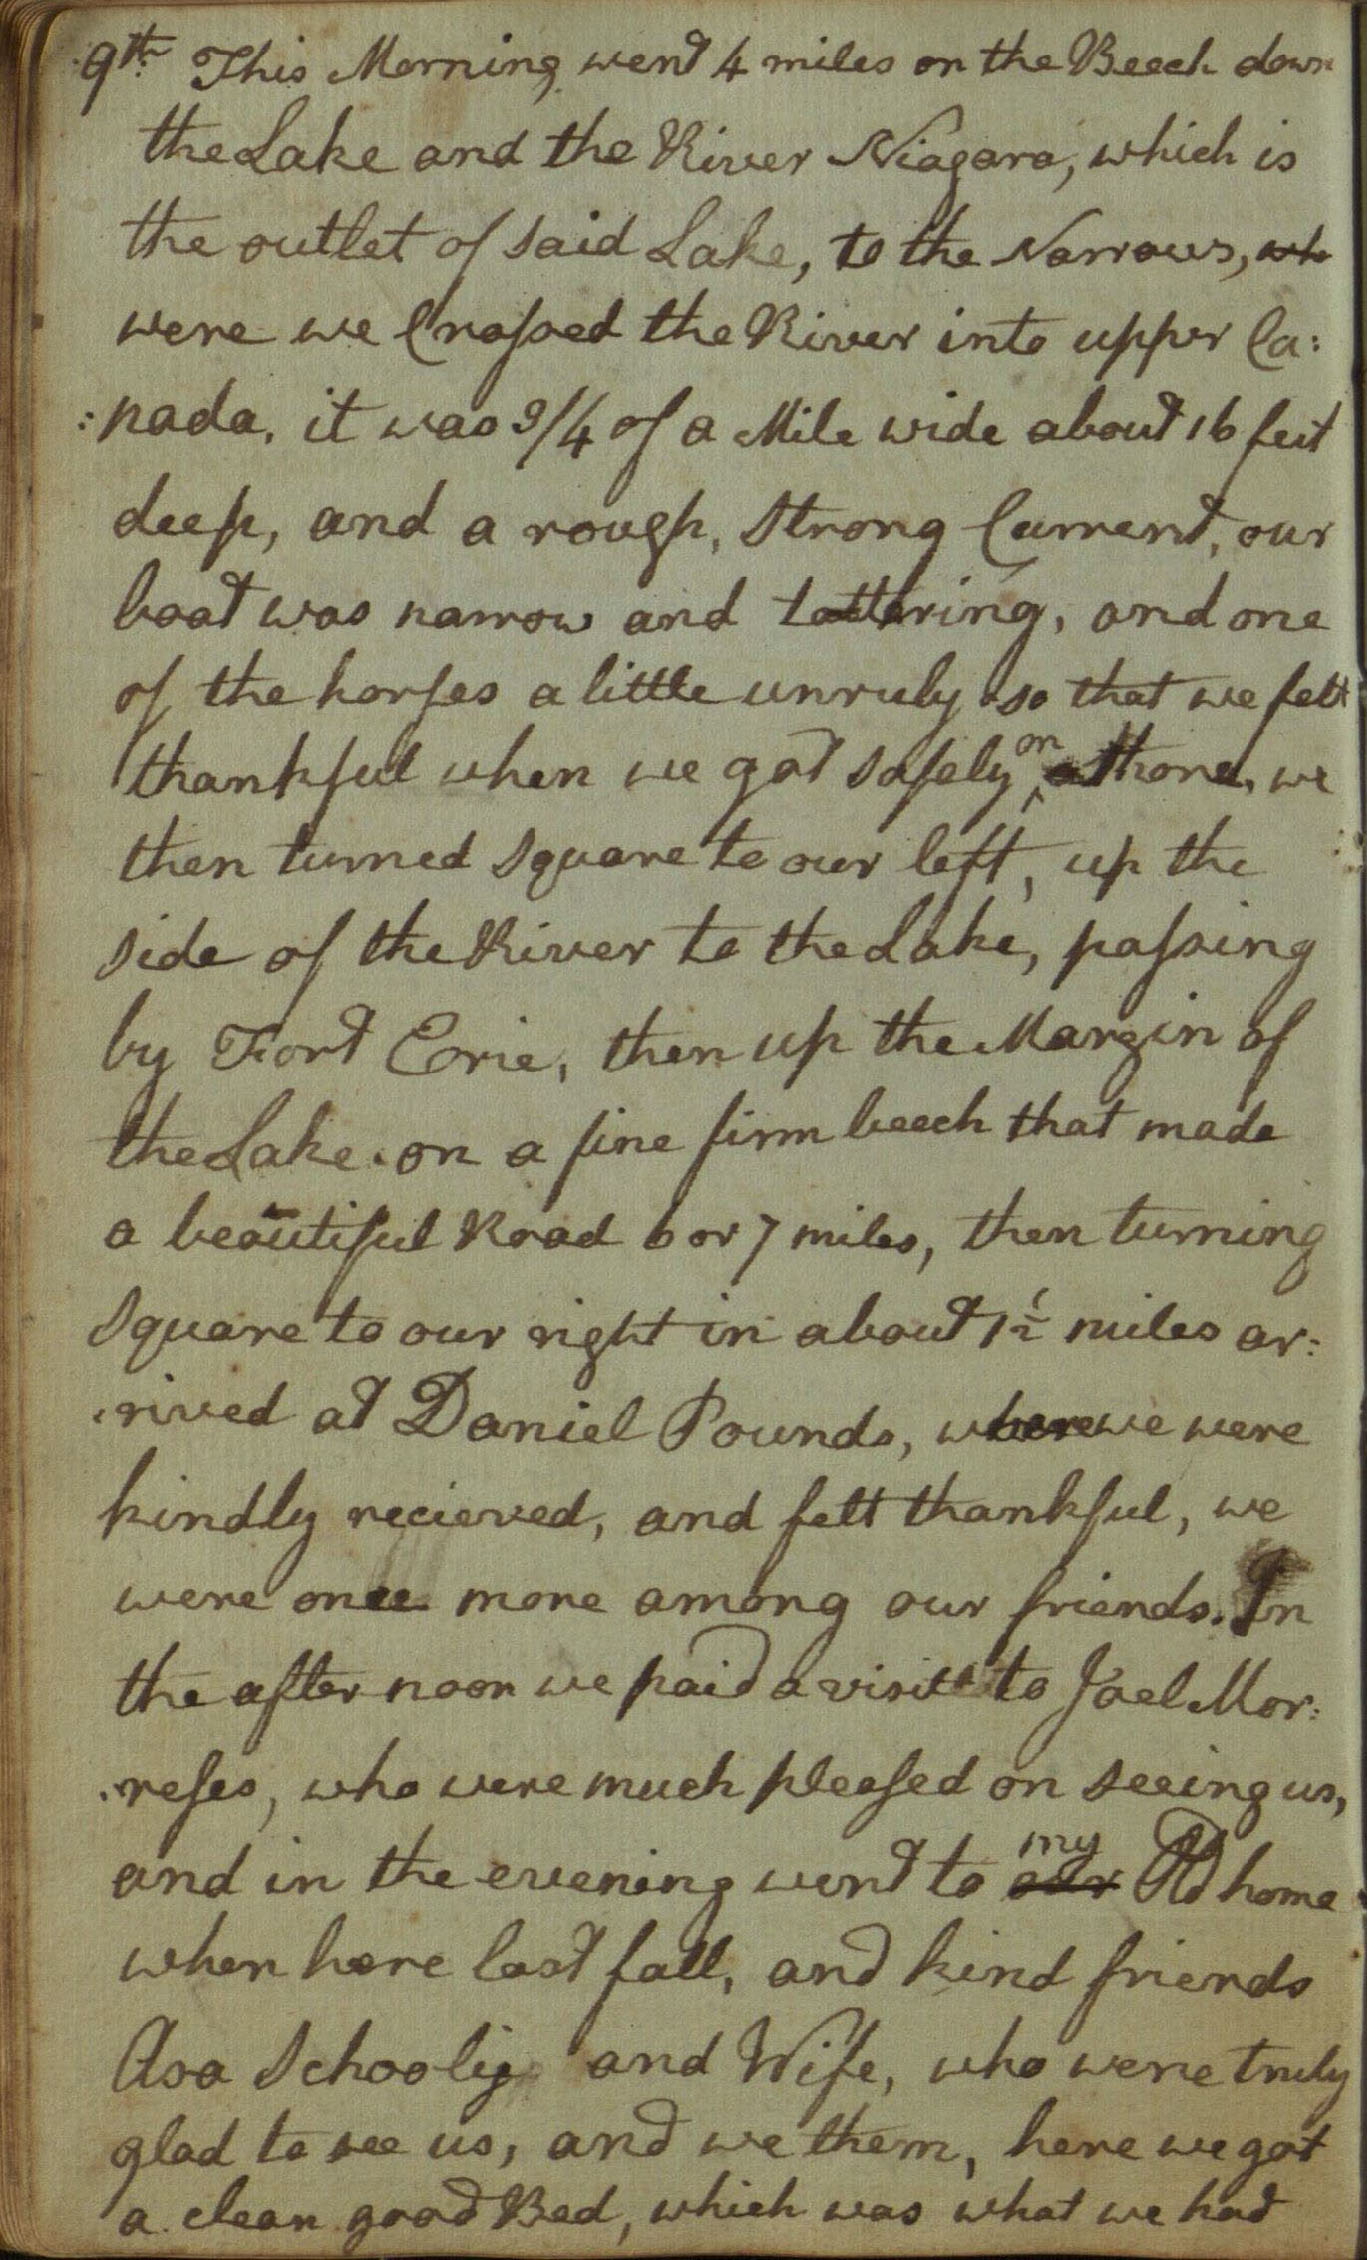 9th This Morning went 4 miles on the Beech down
the Lake and the River Niagara, which is
the outlet of said Lake, to the Narrows, whe
were we Crossed the River into upper Ca:
:nada, it was 3/4 of a Mile wide about 16 feet
deep, and a rough, Strong Current, our
boat was narrow and tottering, and one
of the horses a little unruly so that we felt
thankful when we got safely on shore, we
then turned square to our left, up the
side of the River to the Lake, passing
by Fort Erie, then up the Margin of
the Lake on a fine firm beech that made
a beautiful Road 6 or 7 miles, then turning
square to our right in about 1½ miles ar:
:rived at Daniel Pounds, where we were
kindly recieved, and felt thankful, we
were once more among our friends. In
the afternoon we paid a visit to Joel Mor:
:reses, who were much pleased on seeing us,
and in the evening went to our my Old home
when here last fall, and kind friends
Asa Schooly and Wife, who were truly
glad to see us, and we them, here we got
a clean good Bed, which was what we had